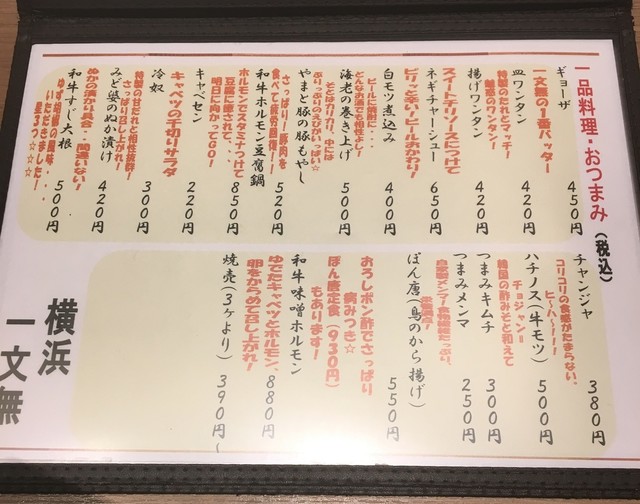 一品料理・おつまみ（税込）
ギョーザ 450円
一文無の1番バッター
皿ワンタン 420円
特製のたれとマッチ！
魅惑のワンタン！
揚げワンタン 420円
スイートチリソースにつけて
ネギチャーシュー 650円
ピリッと辛い！ビールおかわり！
白モツ煮込み 400円
ビールに焼酎に・・
どんなお酒でも相性よし！
海老の巻き上げ 500円
そとはカリカリ、中には
ぷりっぷりのえびがいっぱい☆
やまと豚の豚もやし 520円
さっぱり！豚肉を
食べて疲労回復！！
和牛ホルモン豆腐鍋 850円
ホルモンでスタミナつけて
豆腐に癒されて、
明日に向かってGO！
キャベセン 220円
キャベツの千切りサラダ
冷奴 300円
特製の甘だれと相性抜群！
さっぱり召し上がれ！
みど婆のぬか漬け 420円
ぬかの漬かり具合・・間違いない！
和牛すじ大根 500円
ゆず胡椒の風味・・
いただきました！
星3つ☆☆☆
チャンジャ 380円
コリコリの食感がたまらない。
ヒ〜ハ〜！！！
ハチノス（牛モツ） 500円
チョジャン＝
韓国の酢みそと和えて
つまみキムチ 300円
つまみメンマ 250円
自家製メンマ！食物繊維たっぷり、
栄養満点！
ぽん唐（鳥のから揚げ） 550円
おろしポン酢でさっぱり
病みつき☆
ぽん唐定食（930円）
もあります！
和牛味噌ホルモン 880円
ゆでたキャベツとホルモン、
卵をからめて召し上がれ！
焼売（3ヶより） 390円〜
横浜
一文無